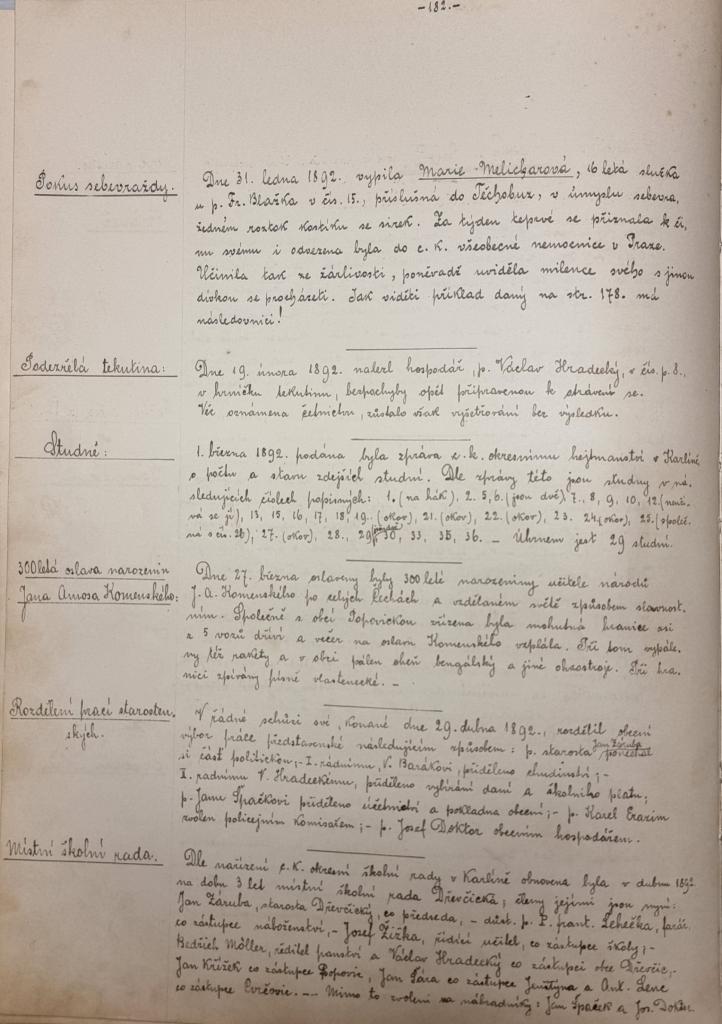 -182.-
Pokus sebevraždy.
Dne 31. ledna 1892. vypila Marie Melicharová, 16 letá služka
u p. Fr. Blažka v čís. 15., příslušná do Těchobuz, v úmyslu sebevra,
žedném roztok kostíku se sirek. Za týden teprvé se přiznala k či,
nu svému i odvezena byla do c. k. všeobecné nemocnice v Praze.
Učinila tak ze žárlivosti, poněvadž uviděla milence svého s jinou
dívkou se procházeti. Jak viděti příklad daný na str. 178. má
následovnici!
Podezřelá tekutina:
Dne 19. února 1892. nalezl hospodář, p. Václav Hradecký, v čís. p. 8.,
v hrníčku tekutinu, bezpochyby opět připravenou k strávení se.
Věc oznámena četnictvu, zůstalo však vyšetřování bez výsledku.
Studně:
1. března 1892. podána byla zpráva c. k. okresnímu hejtmanství v Karlíně
o počtu a stavu zdejších studní. Dle zprávy této jsou studny v ná,
sledujících číslech popisných: 1. (na hák), 2. 5, 6. (jsou dvě), 7., 8, 9, 10, 12. (neuží,
vá se jí), 13, 15, 16, 17, 18, 19. (okov), 21. (okov), 22. (okov), 23. 24. (okov), 25. (společ,
ná s čís. 26), 27. (okov), 28., 29, 30, 33, 35, 36. – Úhrnem jest 29 studní.
300letá oslava narozenin
Jana Amosa Komenského:
Dne 27. března oslaveny byly 300leté narozeniny učitele národů
J. A. Komenského po celých Čechách a vzdělaném světě způsobem slavnost,
ním. Společně s obcí Popovickou zřízena byla mohutná hranice asi
z 5 vozů dříví a večer na oslavu Komenského vzplála. Při tom vypále,
ny též rakety a v obci pálen oheň bengálský a jiné ohňostroje. Při hra,
nici zpívány písně vlastenecké. –
Rozdělení prací starosten,
ských.
V řádné schůzi své, konané dne 29. dubna 1892., rozdělil obecní
výbor práce představenské následujícím způsobem: p. starosta Jan Záruba ponechal
si část politickou; – I. rádnímu, V. Barákovi, přiděleno chudinství; –
I. radnímu V. Hradeckému, přiděleno vybírání daní a školního platu;
p. Janu Špačkovi přiděleno účetnictví a pokladna obecní; – p. Karel Erazim
zvolen policejním komisařem; – p. Josef Doktor obecním hospodářem.
Místní školní rada.
Dle nařízení c. k. okresní školní rady v Karlíně obnovena byla v dubnu 1892.
na dobu 3 let místní školní rada Dřevčická; členy jejími jsou nyní:
Jan Záruba, starosta Dřevčický, co předseda, – důst. p. P. Frant. Lehečka, farář,
co zástupce náboženství, – Josef Žižka, řídící učitel, co zástupce školy; –
Bedřich Möller, ředitel panství a Václav Hradecký co zástupci obce Dřevčic, –
Jan Křížek co zástupce Popovic, Jan Pára co zástupce Jenštýna a Ant. Lenc
co zástupce Cvrčovic. – – Mimo to zvoleni za náhradníky: Jan Špaček a Jos. Doktor.